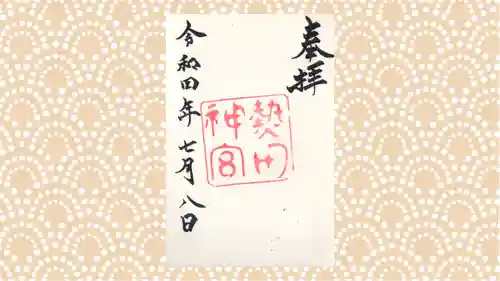 奉拝
熱田
神宮
令和四年七月八日